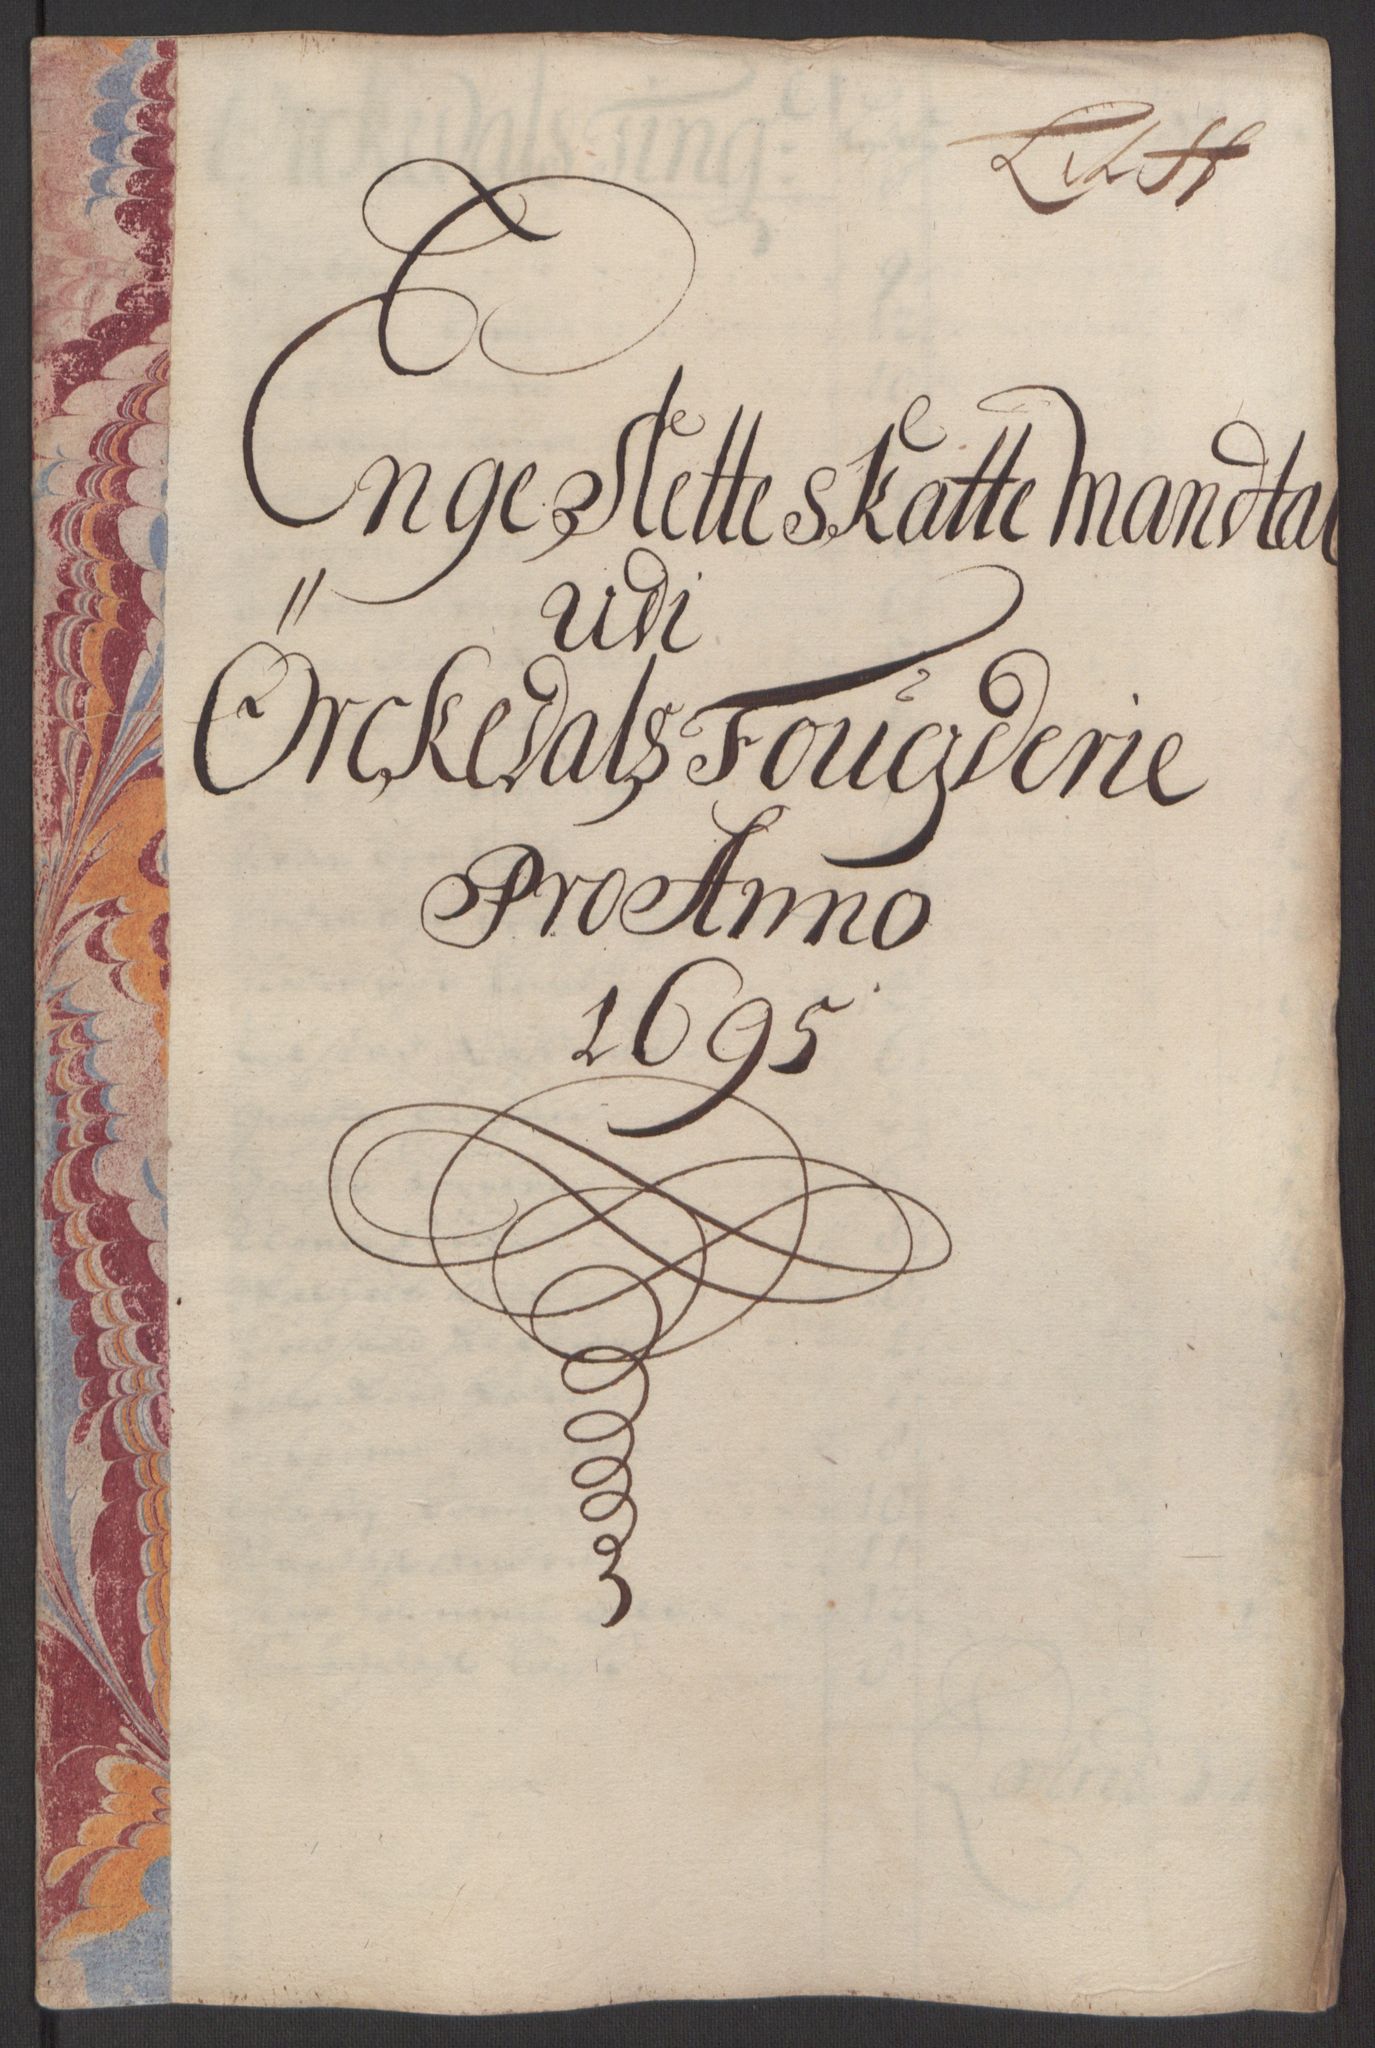 Lit H
Enge Slette skatte Mandtal
udi
Örckedals Fougderie
Pro Anno
1695